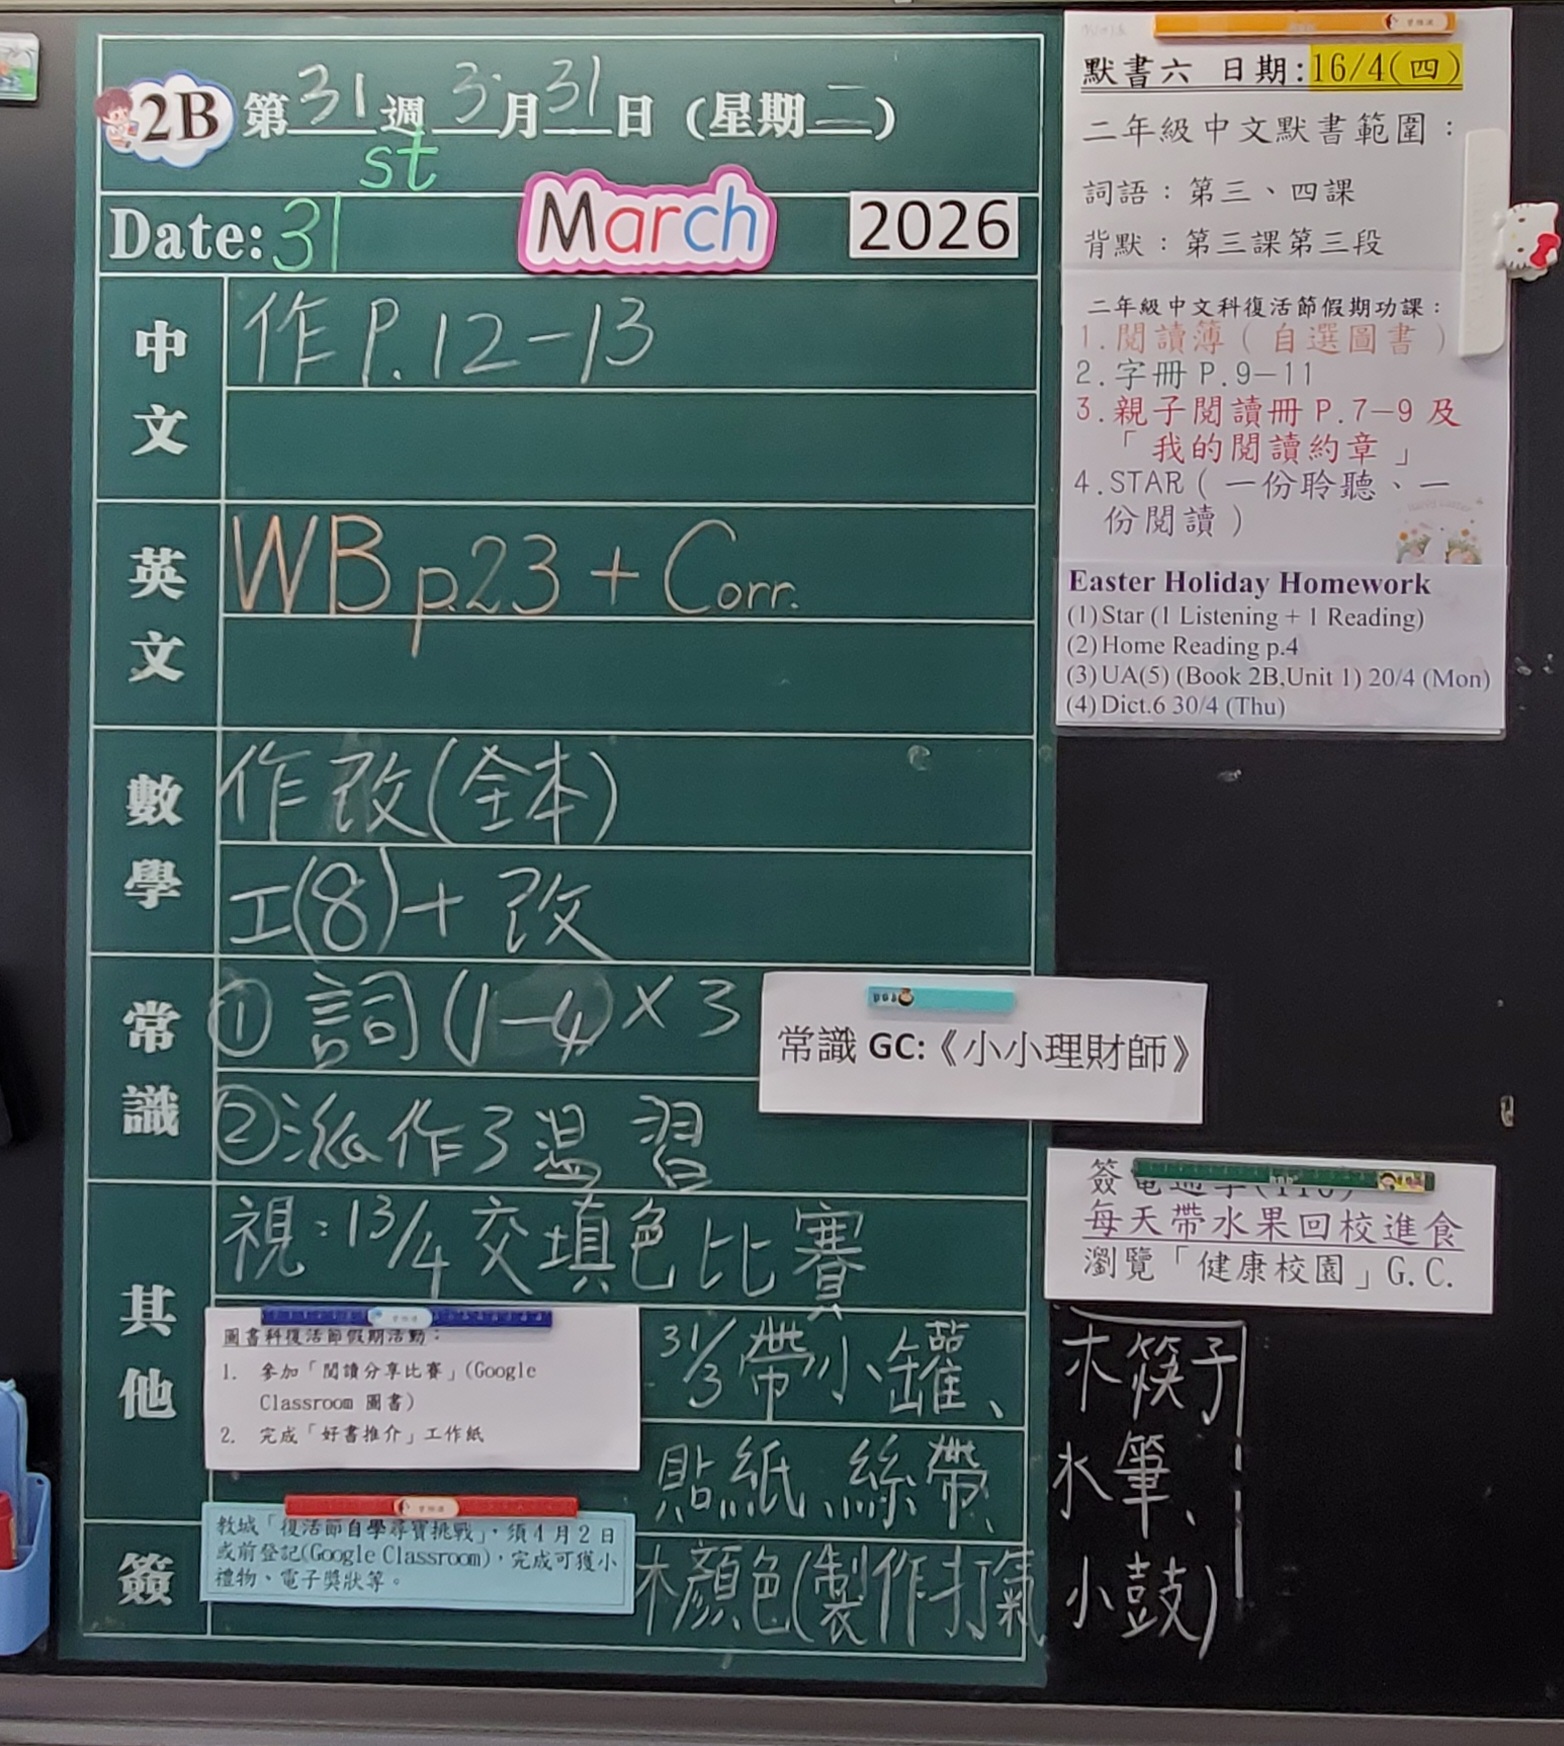 2B 第31週 3月31日 (星期二)
st
Date: 31 March 2026
中文
作 P.12-13
英文
WB p.23 + Corr.
數學
作改(全本)
工(8)+改
常識
① 詞(1-4)×3
常識 GC:《小小理財師》
②派作3溫習
其他
視:13/4 交填色比賽
圖書科復活節假期活動:
1. 參加「閱讀分享比賽」(Google
Classroom 圖書)
2. 完成「好書推介」工作紙
31/3 帶小罐、木筷子
貼紙、絲帶、水筆、
木顏色(製作打氣小鼓)
簽
教城「復活節自學尋寶挑戰」,須4月2日
或前登記(Google Classroom),完成可獲小
禮物、電子獎狀等。
默書六 日期:16/4(四)
二年級中文默書範圍:
詞語:第三、四課
背默:第三課第三段
二年級中文科復活節假期功課:
1.閱讀簿(自選圖書)
2.字冊 P.9-11
3.親子閱讀冊 P.7-9 及
「我的閱讀約章」
4.STAR(一份聆聽、一
份閱讀)
Easter Holiday Homework
(1) Star (1 Listening + 1 Reading)
(2) Home Reading p.4
(3) UA(5) (Book 2B,Unit 1) 20/4 (Mon)
(4) Dict.6 30/4 (Thu)
簽
每天帶水果回校進食
瀏覽「健康校園」G.C.